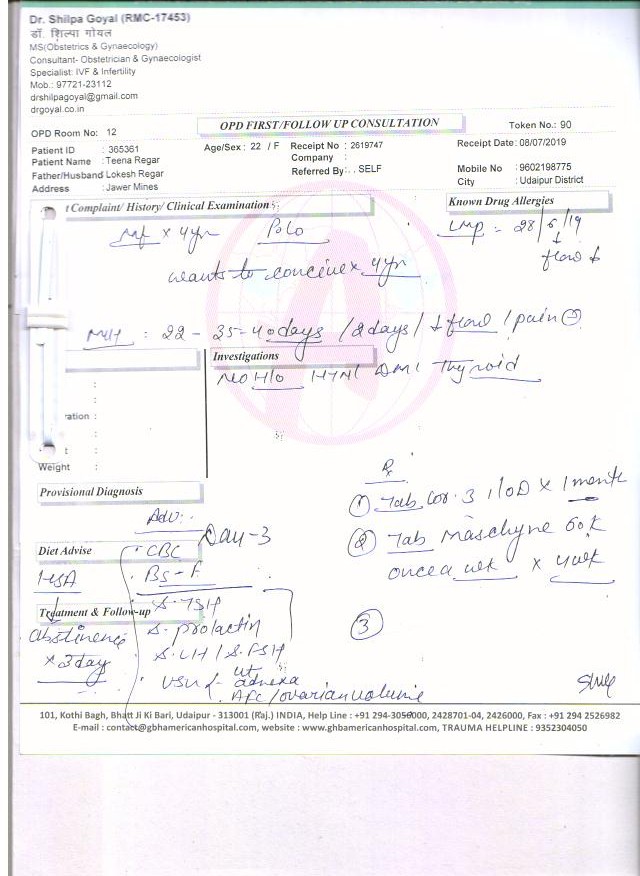 Dr. Shilpa Goyal (RMC-17453)
डॉ. शिल्पा गोयल
MS(Obstetrics & Gynaecology)
Consultant- Obstetrician & Gynaecologist
Specialist: IVF & Infertility
Mob.: 97721-23112
drshilpagoyal@gmail.com
drgoyal.co.in
OPD FIRST/FOLLOW UP CONSULTATION
OPD Room No: 12
Token No.: 90
Patient ID : 365361
Age/Sex : 22 / F
Receipt No : 2619747
Receipt Date: 08/07/2019
Patient Name : Teena Regar
Company :
Father/Husband Lokesh Regar
Referred By: . SELF
Mobile No : 9602198775
Address : Jawer Mines
City : Udaipur District
t Complaint/ History/ Clinical Examination :
Known Drug Allergies
Mf x 4yr P0L0
LMP = 28/6/19
↓
flow ↓
wants to conceive x 4yr
M/H : 22 - 35-40days / 2days / ↓ flow / pain
Investigations
No H/o HTN/ DM/ Thyroid
:
:
ration :
:
t :
Weight :
Provisional Diagnosis
Rx
① Tab Cor. 3 1 OD x 1 month
② Tab 60 K
once a week x 4wk
③
Adv:-
Day-3
Diet Advise
CBC
BS-F
HSA
↓
Treatment & Follow-up
abstinence
x 3day
S. TSH
S. prolactin
S. LH / S. FSH
USG ut
adnexa
AFC / ovarian volume
101, Kothi Bagh, Bhatt Ji Ki Bari, Udaipur - 313001 (Raj.) INDIA, Help Line : +91 294-3056000, 2428701-04, 2426000, Fax : +91 294 2526982
E-mail : contact@gbhamericanhospital.com, website : www.gbhamericanhospital.com, TRAUMA HELPLINE : 9352304050